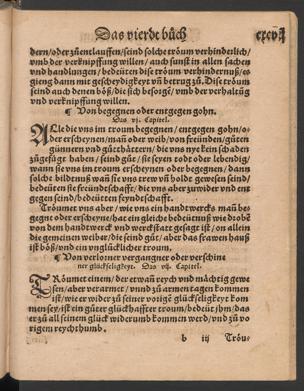 Das vierdt büch
dern/oder zůentlauffen/seind solche tröum verhinderlich/
vmb der verknipffung willen/ auch sunst in allen sachen
vnd handlungen/ bedeüten dise tröum verhindernuß/es
gieng dann mit gescheydigkeyt vñ betrug zů. Dise tröum
seind auch denen böß/die sich besorgē/vmb der verhaltūg
vnd verknipffung willen.
¶ Von begegnen oder entgegen gohn.
Das. vj. Capitel.
Alle die vns im troum begegnen/ entgegen gohn/o-
der erscheynen/man̄ oder weib/von freünden/gůten
günnern vnd gůtthättern/ die vns nye kein schaden
zůgefügt haben / seind gůt/sie seyen todt oder lebendig/
wann sie vns im troum erscheynen oder begegnen/ dann
solche bildtnuß wañ sie vns trew vñ holdt gewesen seind/
bedeüten sie freündtschafft/ die vns aber zuwider vnd ent
gegen seind/bedeüten feyndtschafft.
Tröumet vns aber/ wie vns ein handtwercks man̄ be-
gegne oder erscheyne/hat ein gleiche bedeütnuß wie drobē
von dem handtwerck vnd werckstatt gesagt ist/on allein
die gemeinen weiber/die seind gůt/ aber das frawen hauß
ist böß/vnd ein vnglücklicher troum.
¶ Von verlorner vergangner oder verschine
ner glückseligkeyt. Das vij. Capitel.
Tröumet einem/der etwañ reych vnd mächtig gewe
sen/aber verarmet / vnnd zů armen tagen kommen
ist/wie er wider zů seiner vorigē glückseligkeyt kom
men sey/ist ein gůter glückhaffter troum/bedeüt jhm/das
er zů all seinem glück widerumb kommen werd/vnd zů vo
rigem reychthumb.
b iij Tröu-